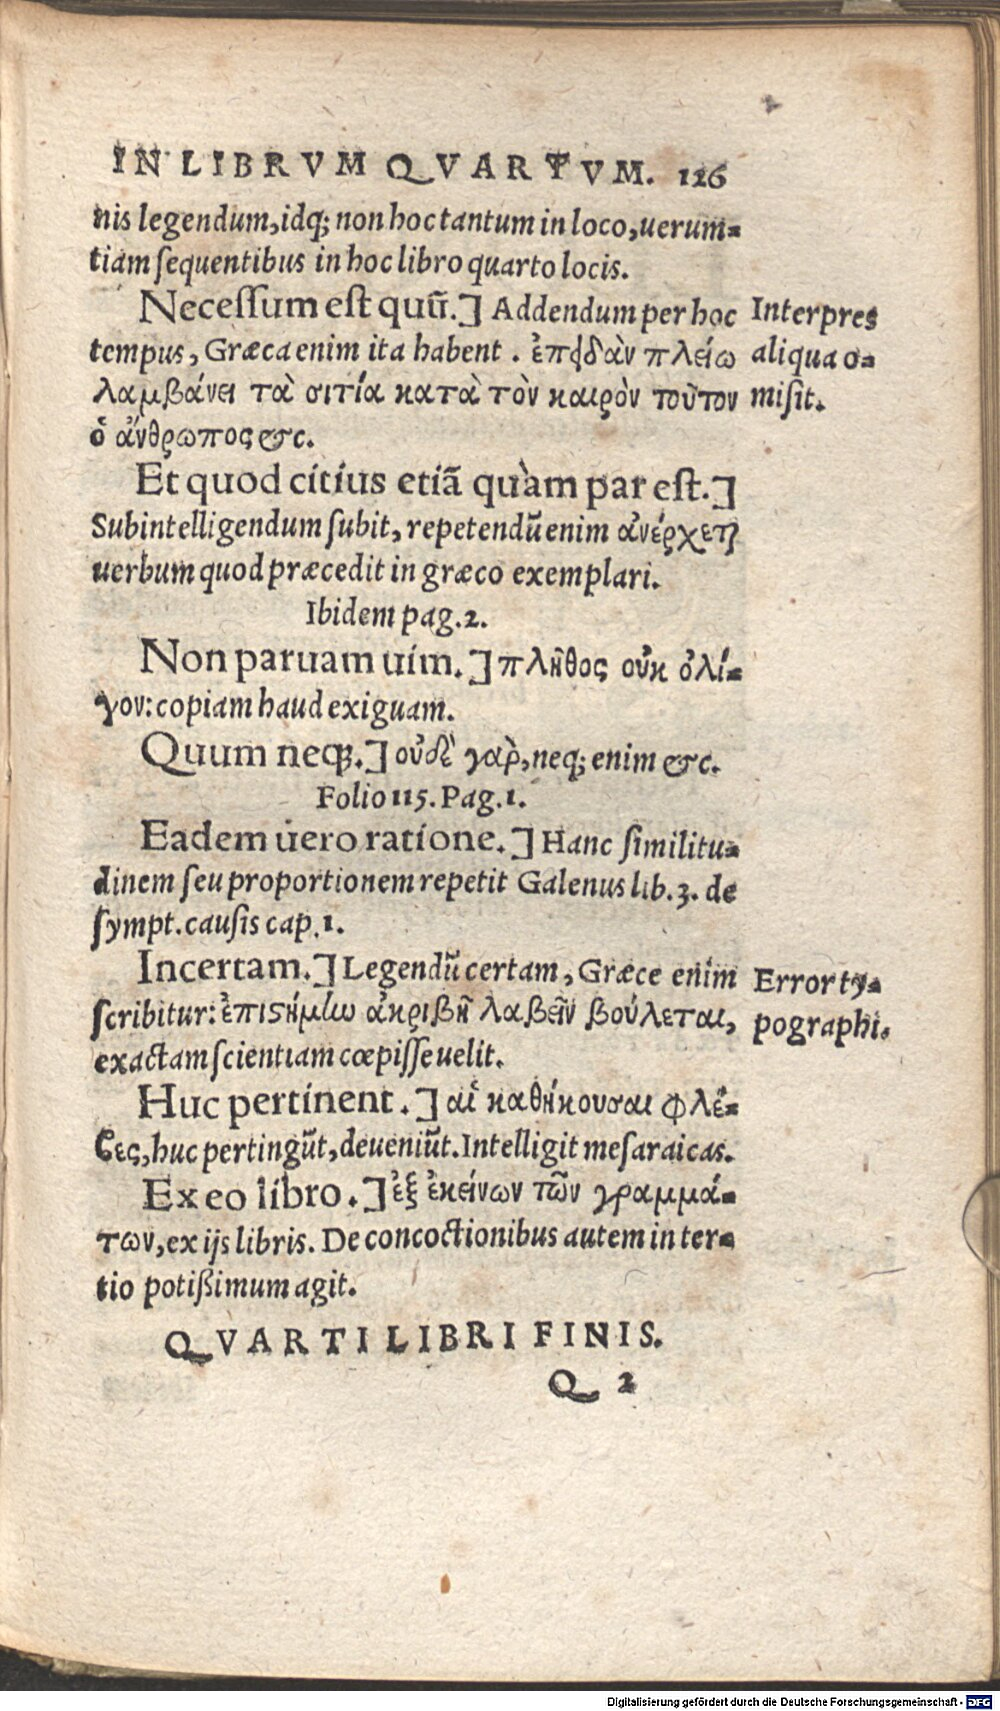 IN LIBRVM QVARTVM. 126
nis legendum, idq; non hoc tantum in loco, uerum-
tiam sequentibus in hoc libro quarto locis.
Necessum est quū.] Addendum per hoc
Interpres
tempus, Græca enim ita habent. ἐπειδὰν πλείω
aliqua o-
λαμβάνει τὰ σιτία κατὰ τὸν καιρὸν τοῦτον
misit.
ὁ ἄνθρωπος &c.
Et quod citius etiā quàm par est.]
Subintelligendum subit, repetendū enim ἀνέρχεται
uerbum quod præcedit in græco exemplari.
Ibidem pag. 2.
Non paruam uim.] πλῆθος οὐκ ὀλί-
γον: copiam haud exiguam.
Quum neq;.] οὐδὲ γὰρ, neq; enim &c.
Folio 115. Pag. 1.
Eadem uero ratione.] Hanc similitu-
dinem seu proportionem repetit Galenus lib. 3. de
sympt. causis cap. 1.
Incertam.] Legendū certam, Græce enim
Error ty-
scribitur: ἐπιστήμην ἀκριβῆ λαβεῖν βούλεται,
pographi.
exactam scientiam cœpisse uelit.
Huc pertinent.] αἱ καθήκουσαι φλέ-
βες, huc pertingūt, deueniūt. Intelligit mesaraicas.
Ex eo libro.] ἐξ ἐκείνων τῶν γραμμά-
των, ex ijs libris. De concoctionibus autem in ter-
tio potißimum agit.
QVARTI LIBRI FINIS.
Q 2
Digitalisierung gefördert durch die Deutsche Forschungsgemeinschaft - DFG